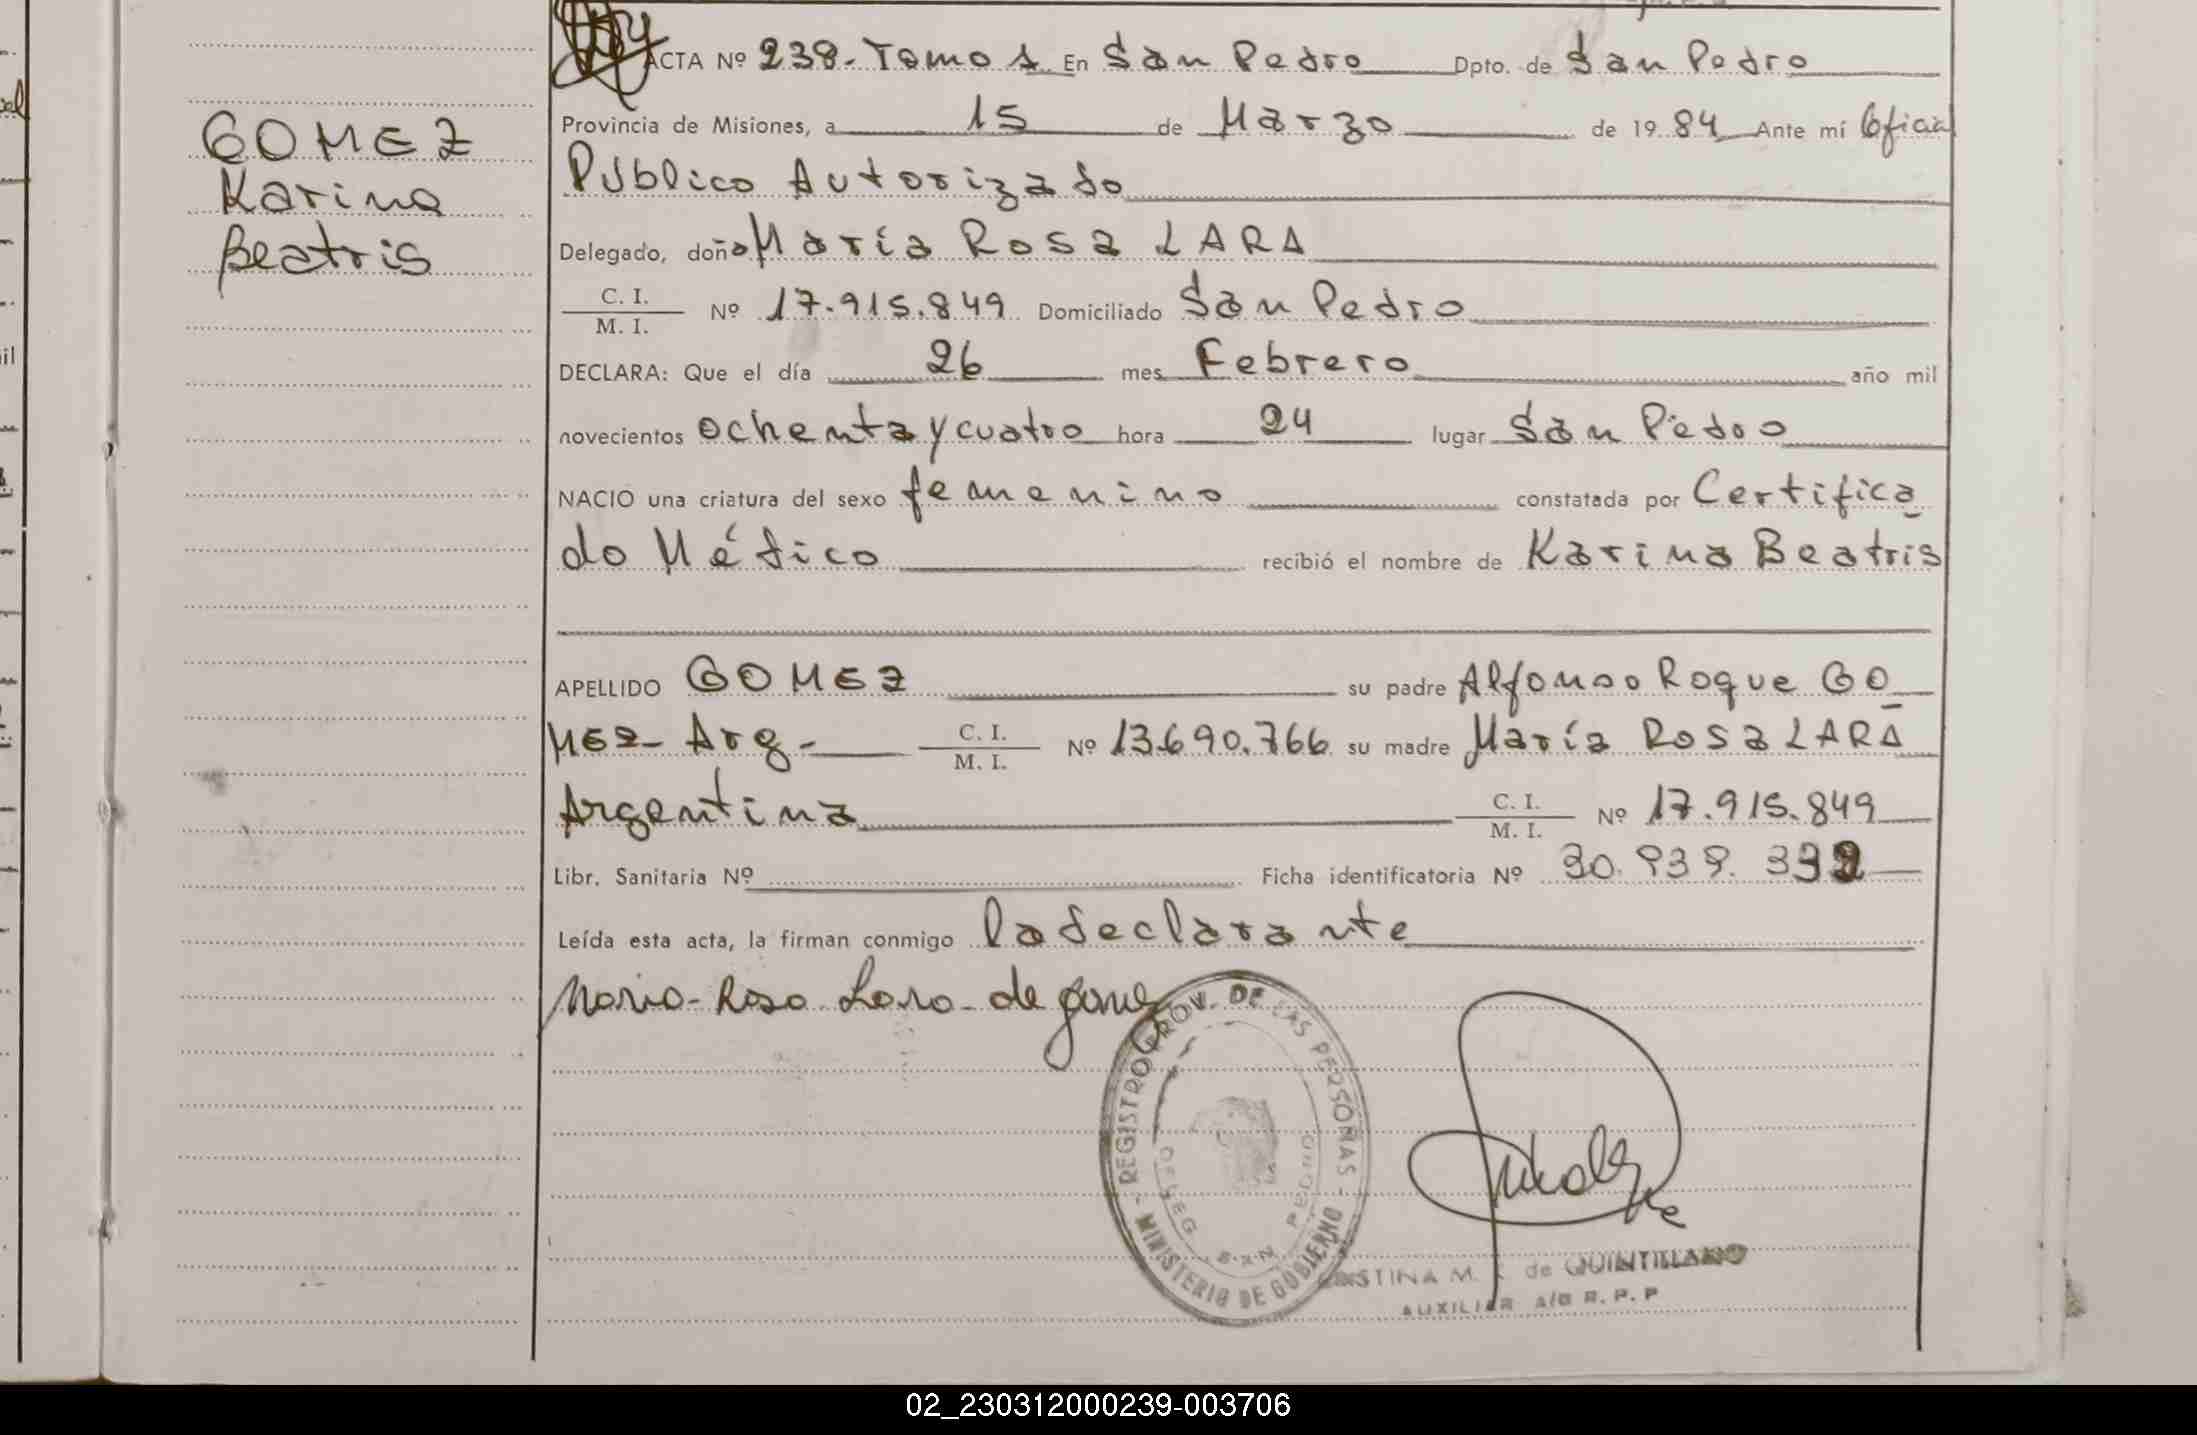 GOMEZ
Karina
Beatris
ACTA Nº 238. Tomo 1 En San Pedro Dpto. de San Pedro
Provincia de Misiones, a 15 de Marzo de 1984 Ante mí Oficial
Público Autorizado
Delegado, doña María Rosa LARA
C. I.
M. I. Nº 17.915.849 Domiciliado San Pedro
DECLARA: Que el día 26 mes Febrero año mil
novecientos ochenta y cuatro hora 24 lugar San Pedro
NACIO una criatura del sexo femenino constatada por Certifica
do Médico recibió el nombre de Karina Beatris
APELLIDO GOMEZ su padre Alfonso Roque GO
MEZ- Arg.- C. I. M. I. Nº 13.690.766 su madre María Rosa LARA
Argentina C. I. M. I. Nº 17.915.849
Libr. Sanitaria Nº Ficha identificatoria Nº 30.939.332
Leída esta acta, la firman conmigo la declarante
Maria-Rosa Lara-de gomez
REGISTRO PROV. DE LAS PERSONAS - MINISTERIO DE GOBIERNO
DELEG. SAN PEDRO
CRISTINA M. de QUINTILLANO
AUXILIAR A/C R.P.P
02_230312000239-003706